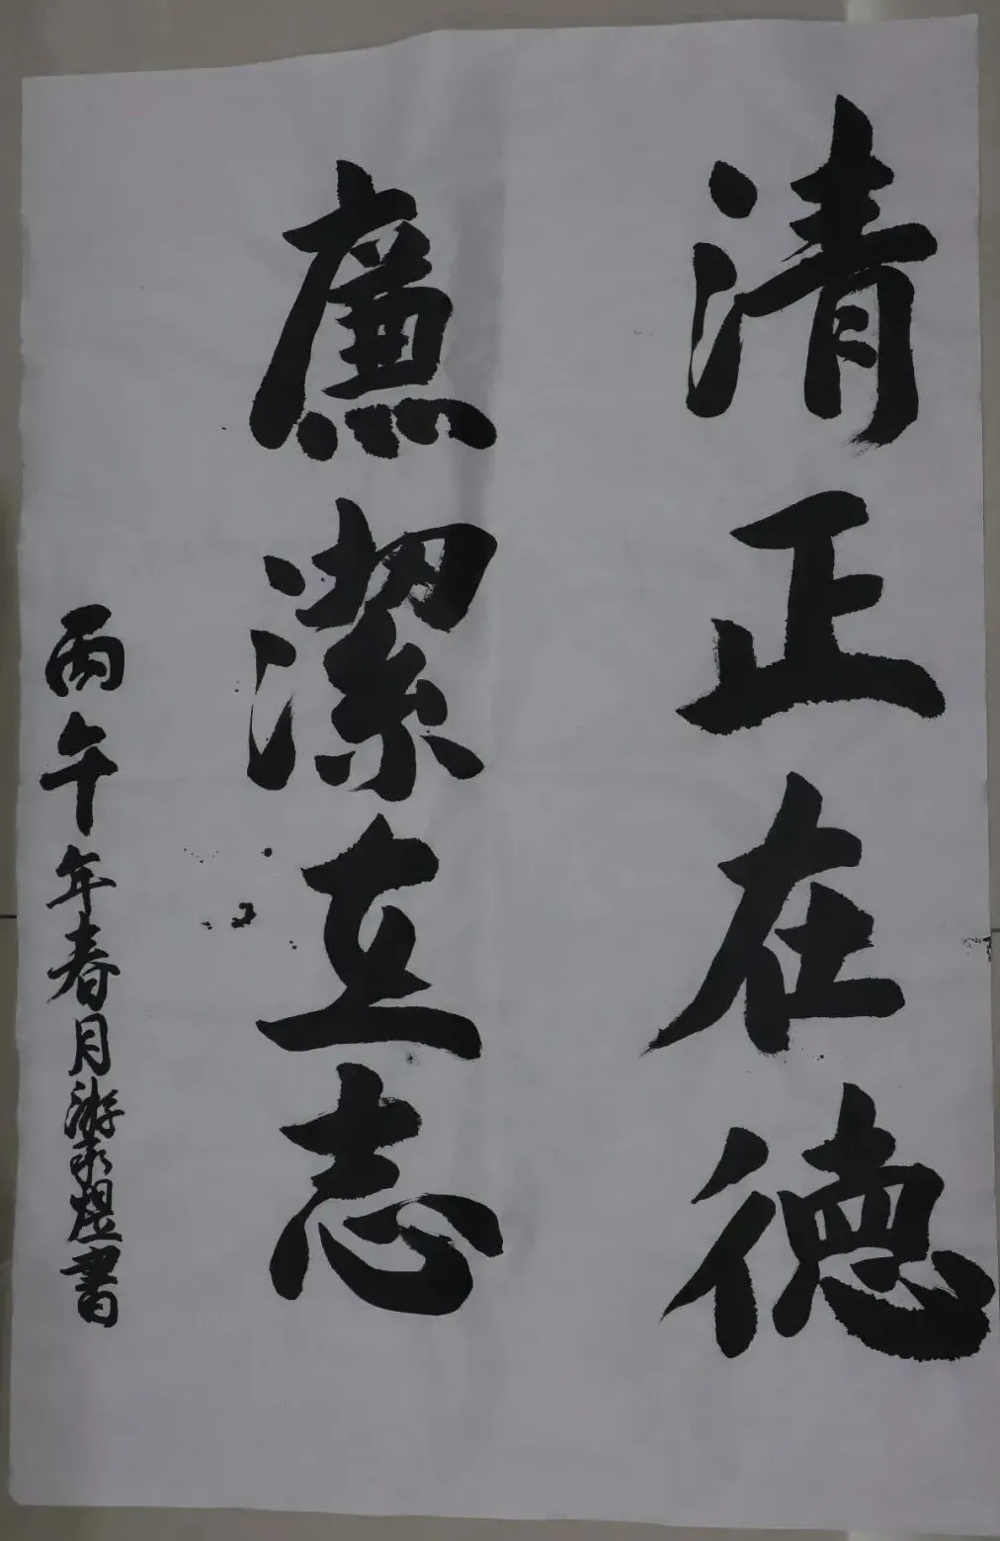 清正在德
廉潔立志
丙午年春月游永煜書